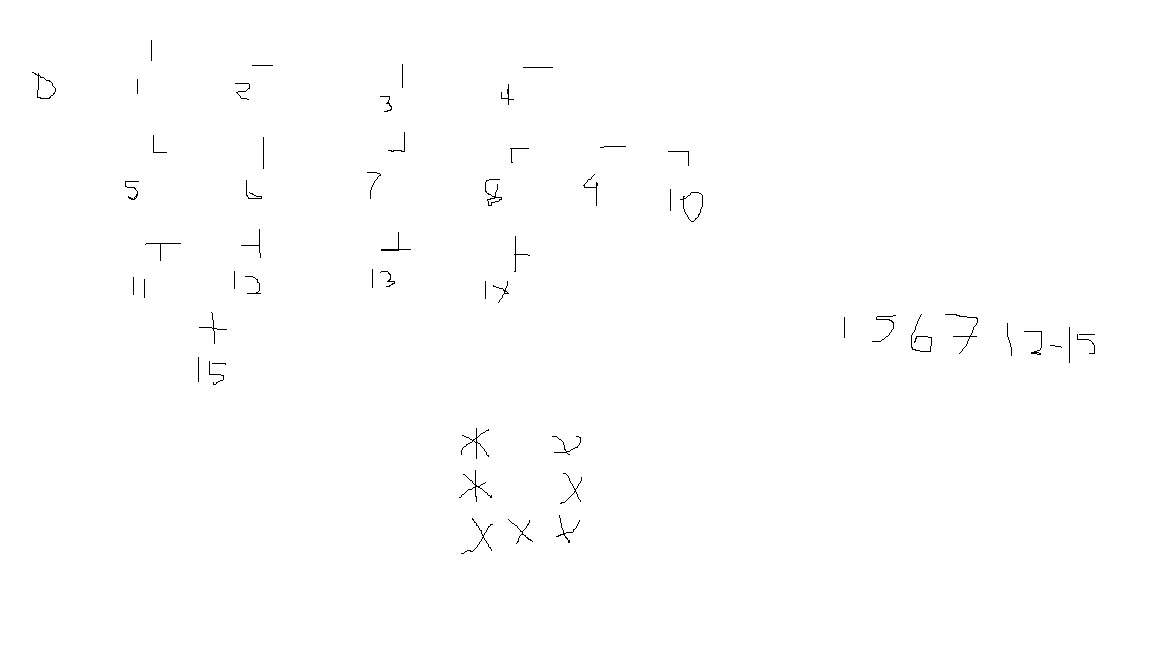 D 1 2 3 4
5 6 7 8 9 10
11 12 13 14
15
1 5 6 7 12-15
* x
* x
x x x